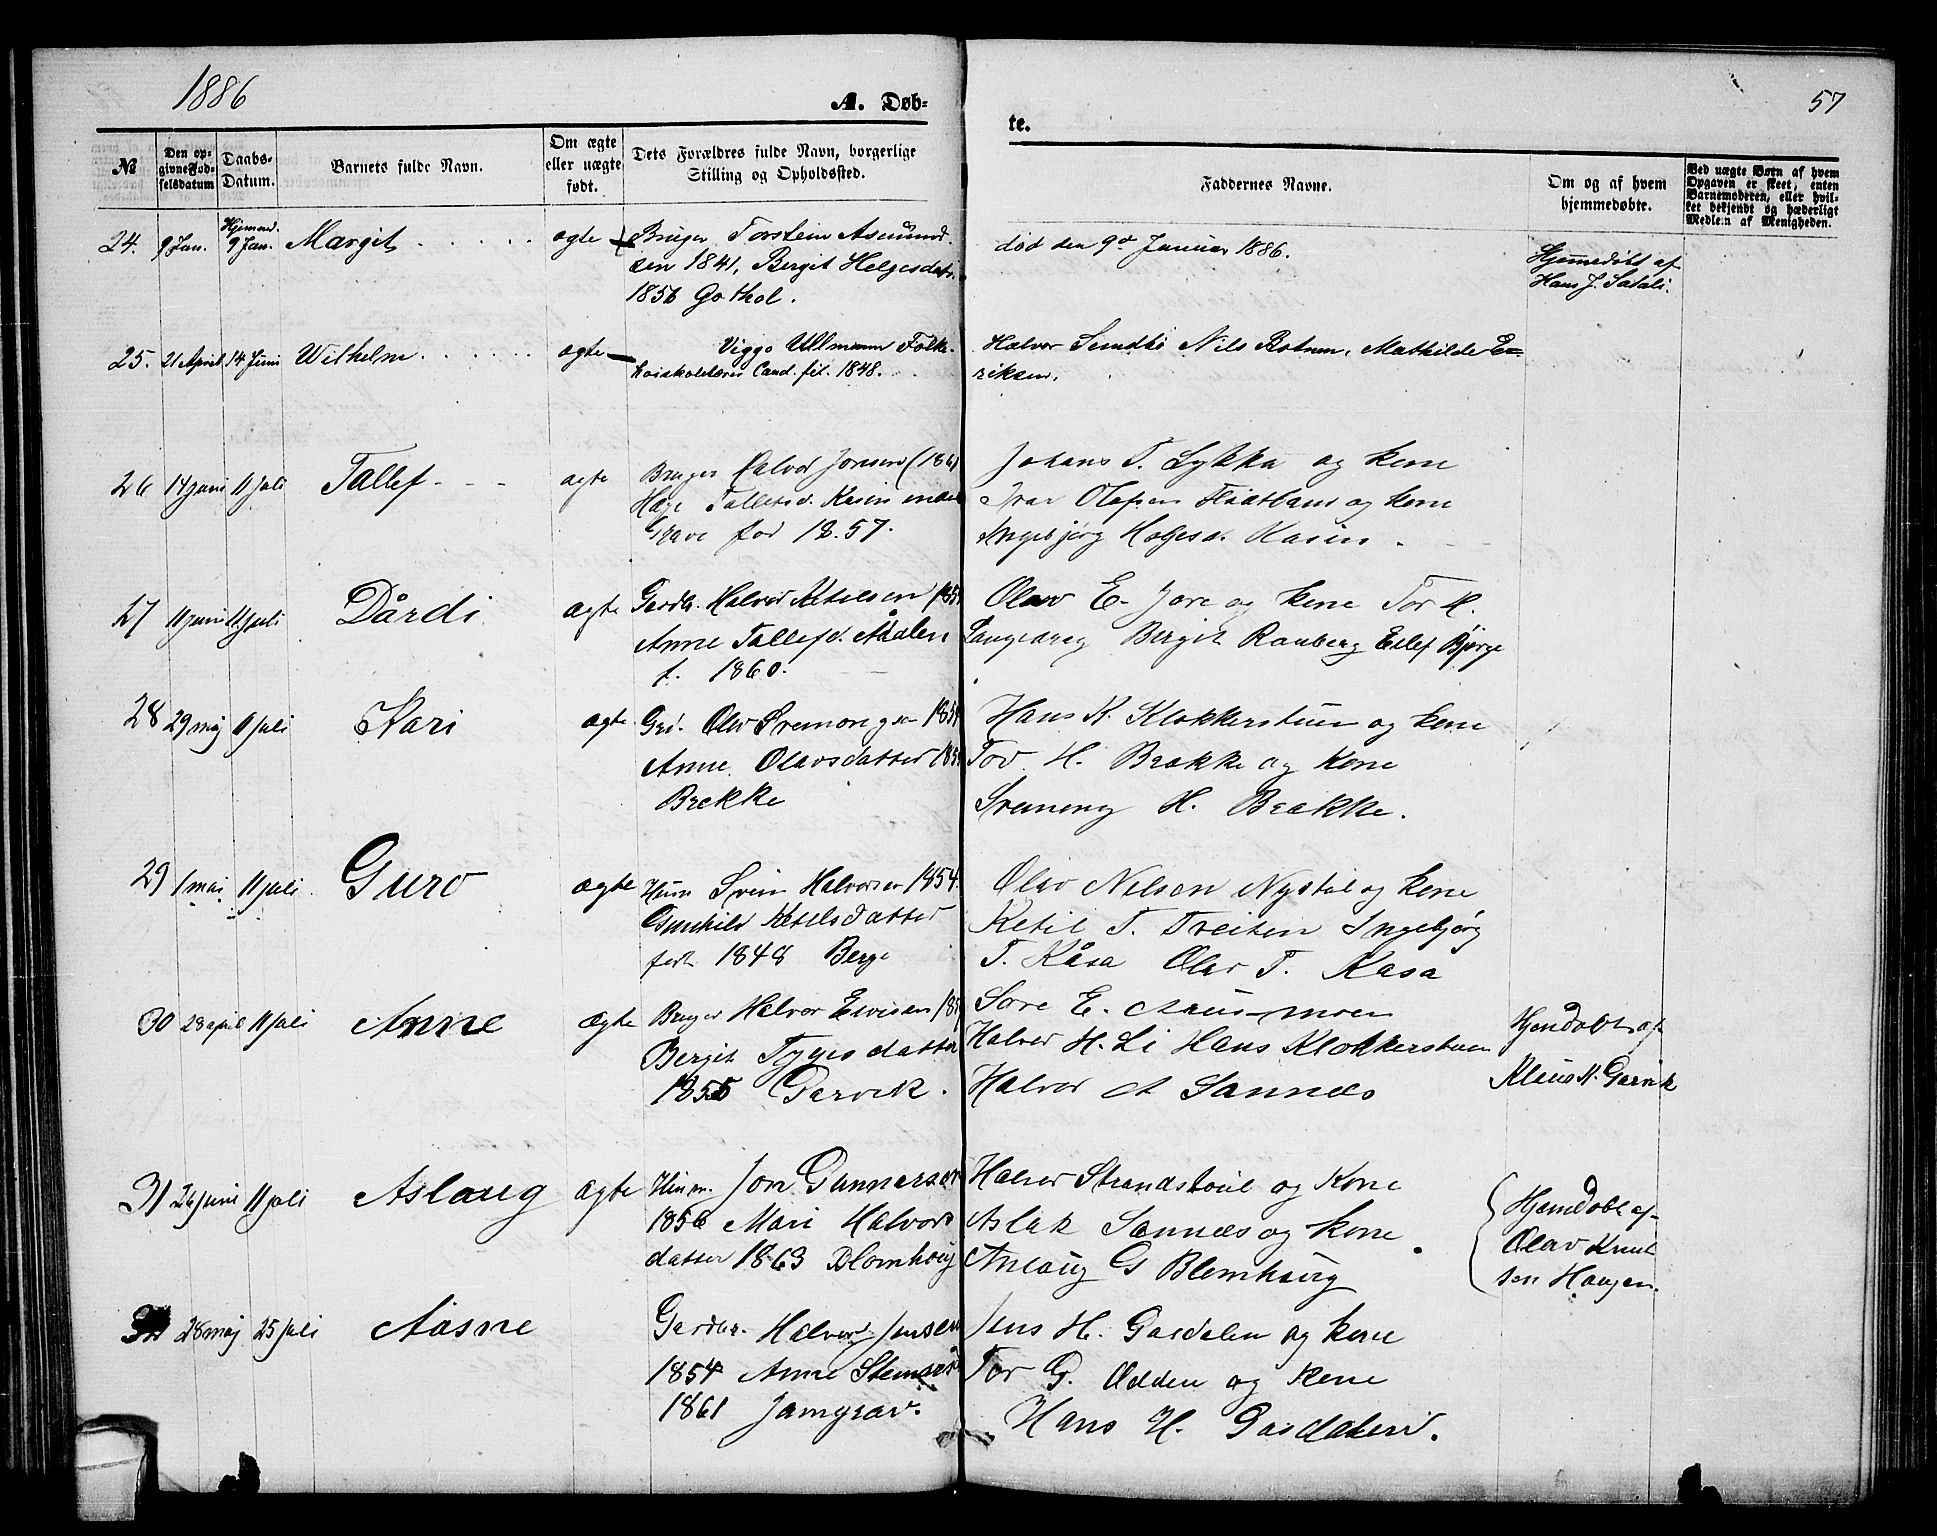 1886
A. Døb-
te.
57
№
Den op-
givne Fød-
selsdatum
Daabs-
Datum.
Barnets fulde Navn.
Om ægte
eller uægte
født.
Dets Forældres fulde Navn, borgerlige
Stilling og Opholdssted.
Faddernes Navne.
Om og af hvem
hjemmedøbte.
Ved uægte Børn af hvem
Opgaven er skeet, enten
Barnemoderen, eller hvil-
ket bekjendt og hæderligt
Medlem af Menigheden.
24. 9 Jan. Hjemmed. 9 Jan. Margit ægte Bruger Torstein Asmund-
sen 1841, Bergit Helgesdatr.
1856 Gothol.
død den 9de Januar 1886.
Hjemmedøbt af
Hans J. Satali.
25. 21 April 14 Juni Wilhelm ægte Viggo Ullmann Folke-
høiskolelærer Cand. fil. 1848.
Halvor Sundbø Nils Botnen, Mathilde E-
riksen.
26 14 juni 11 juli Tallef ægte Bruger Halvor Jonsen (1861
Tallefsd. Kasin
Grave fød 1857.
Johans T. Lykka og kone
Ivar Olafsen og kone
Ingebjørg Helgesd. Kasin.
27 11 juni 11 juli Dårdi ægte Gardb. Halvor Ketilsen 185
Anne Tallefsd. Ådalen
f. 1860.
Olav E. Jore og kone Tor K.
Langedrag Bergit Rauberg Eilef Bjørge
28 29 maj 11 juli Kari ægte Grd. Olav Sveinongsen 1854
Anne Olavsdatter 185
Brekke
Hans K. Klokkerstuen og kone
Tov H. Brekke og Kone
Sveinung H. Brekke.
29 1 mai 11 juli Guro ægte Hum Svein Halvorsen 1854.
Gunhild Ketilsdatter
født 1848 Berge
Olav Nilsen Nystøl og kone
Ketil T. Treiten Ingebjørg
T. Kåsa Olav T. Kasa
30 28 april 11 juli Anne ægte Bruger Halvor Eivisen 185
Bergit Tygesdatter
1855 Garvik.
Sove E. moen
Halvor H. Li Hans Klokkerstuen
Halvor A Sannæs
Hjemdøbt af
Klaus N. Garvik
31 26 juni 11 juli Aslaug ægte Husm. Jon Gunnarsen
1856 Mari Halvors
datter 1863 Blomhoug
Halvor Strandstoul og Kone
Aslak Sannæs og kone
Anlaug G Blomhaug
Hjemdøbt af
Olav Knut
sen Haugen.
32 28 maj 25 juli Aasne Gardbr. Halvor Jensen
1854 Anne Steinarsd
1861 Jamgrav.
Jens H. Gardalen og kone
Tor G. Ødden og kone
Hans H. Gardalen.